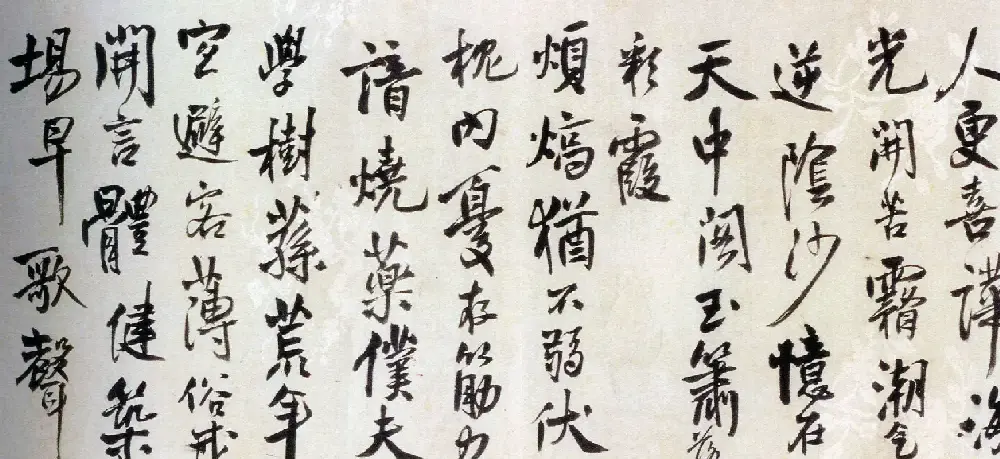 人更喜譚海
光開苦潮气
逆陰沙憶在
天中閣玉簫落
彩霞
煩熇猶不弱伏
枕內憂存筋力
諳燒藥僕夫
學樹蓀荒年
空避客薄俗戒
開言體健築
場早歌聲